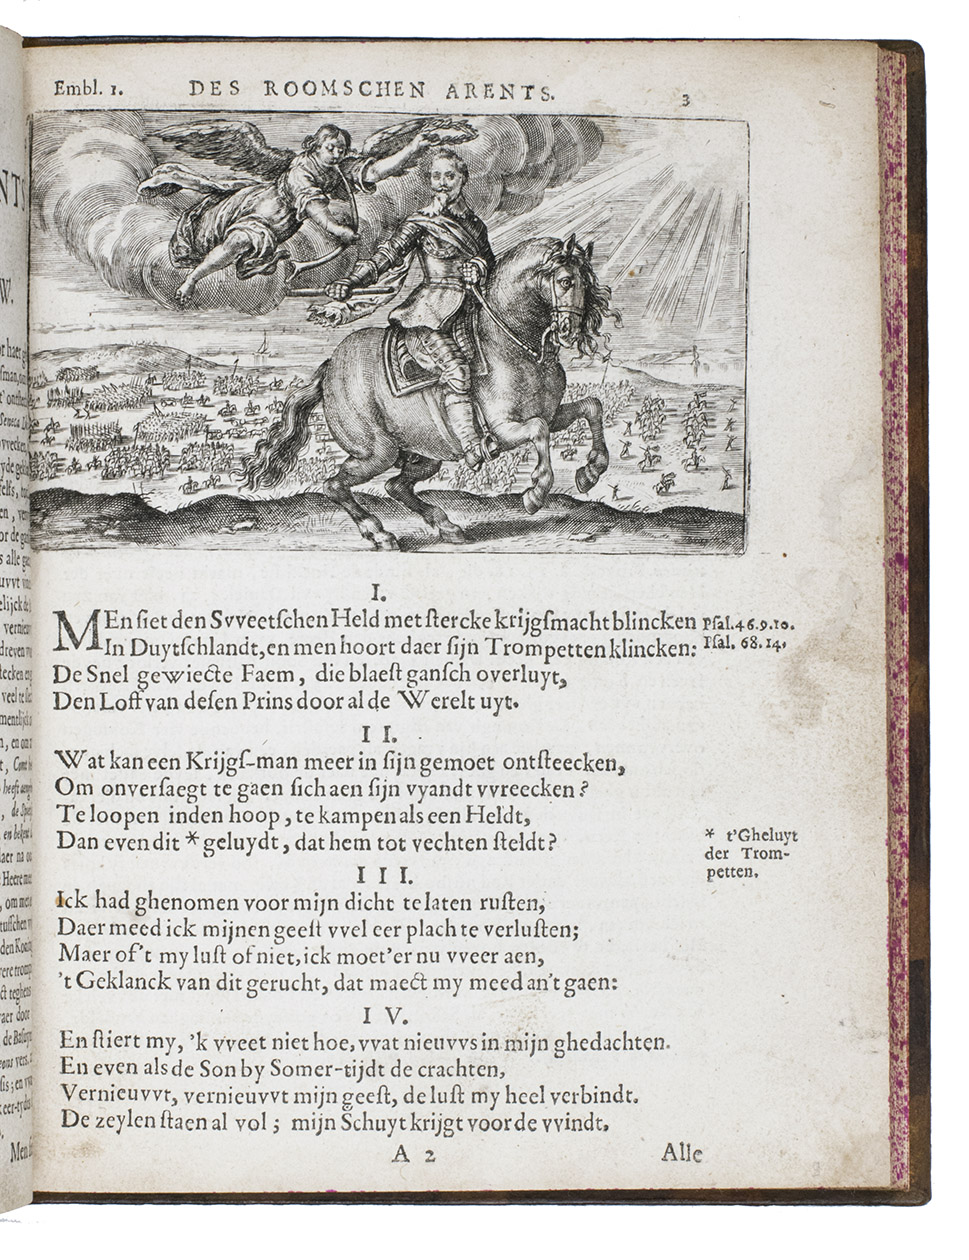 Embl. 1. DES ROOMSCHEN ARENTS. 3
I.
MEn siet den Svveetschen Held met stercke krijgsmacht blincken Psal.46.9.10.
In Duytschlandt, en men hoort daer sijn Trompetten klincken: Psal. 68.14.
De Snel gewiecte Faem, die blaest gansch overluyt,
Den Loff van desen Prins door al de Werelt uyt.
II.
Wat kan een Krijgs-man meer in sijn gemoet ontsteecken,
Om onversaegt te gaen sich aen sijn vyandt vvreecken?
Te loopen inden hoop, te kampen als een Heldt,
Dan even dit * geluydt, dat hem tot vechten steldt?
* t'Gheluyt
der Trom-
petten.
III.
Ick had ghenomen voor mijn dicht te laten rusten,
Daer meed ick mijnen geest vvel eer plach te verlusten;
Maer of't my lust of niet, ick moet'er nu vveer aen,
't Geklanck van dit gerucht, dat maect my meed an't gaen:
IV.
En stiert my, 'k vveet niet hoe, vvat nieuvvs in mijn ghedachten.
En even als de Son by Somer-tijdt de crachten,
Vernieuvvt, vernieuvvt mijn geest, de lust my heel verbindt.
De zeylen staen al vol; mijn Schuyt krijgt voor de vvindt.
A 2 Alle